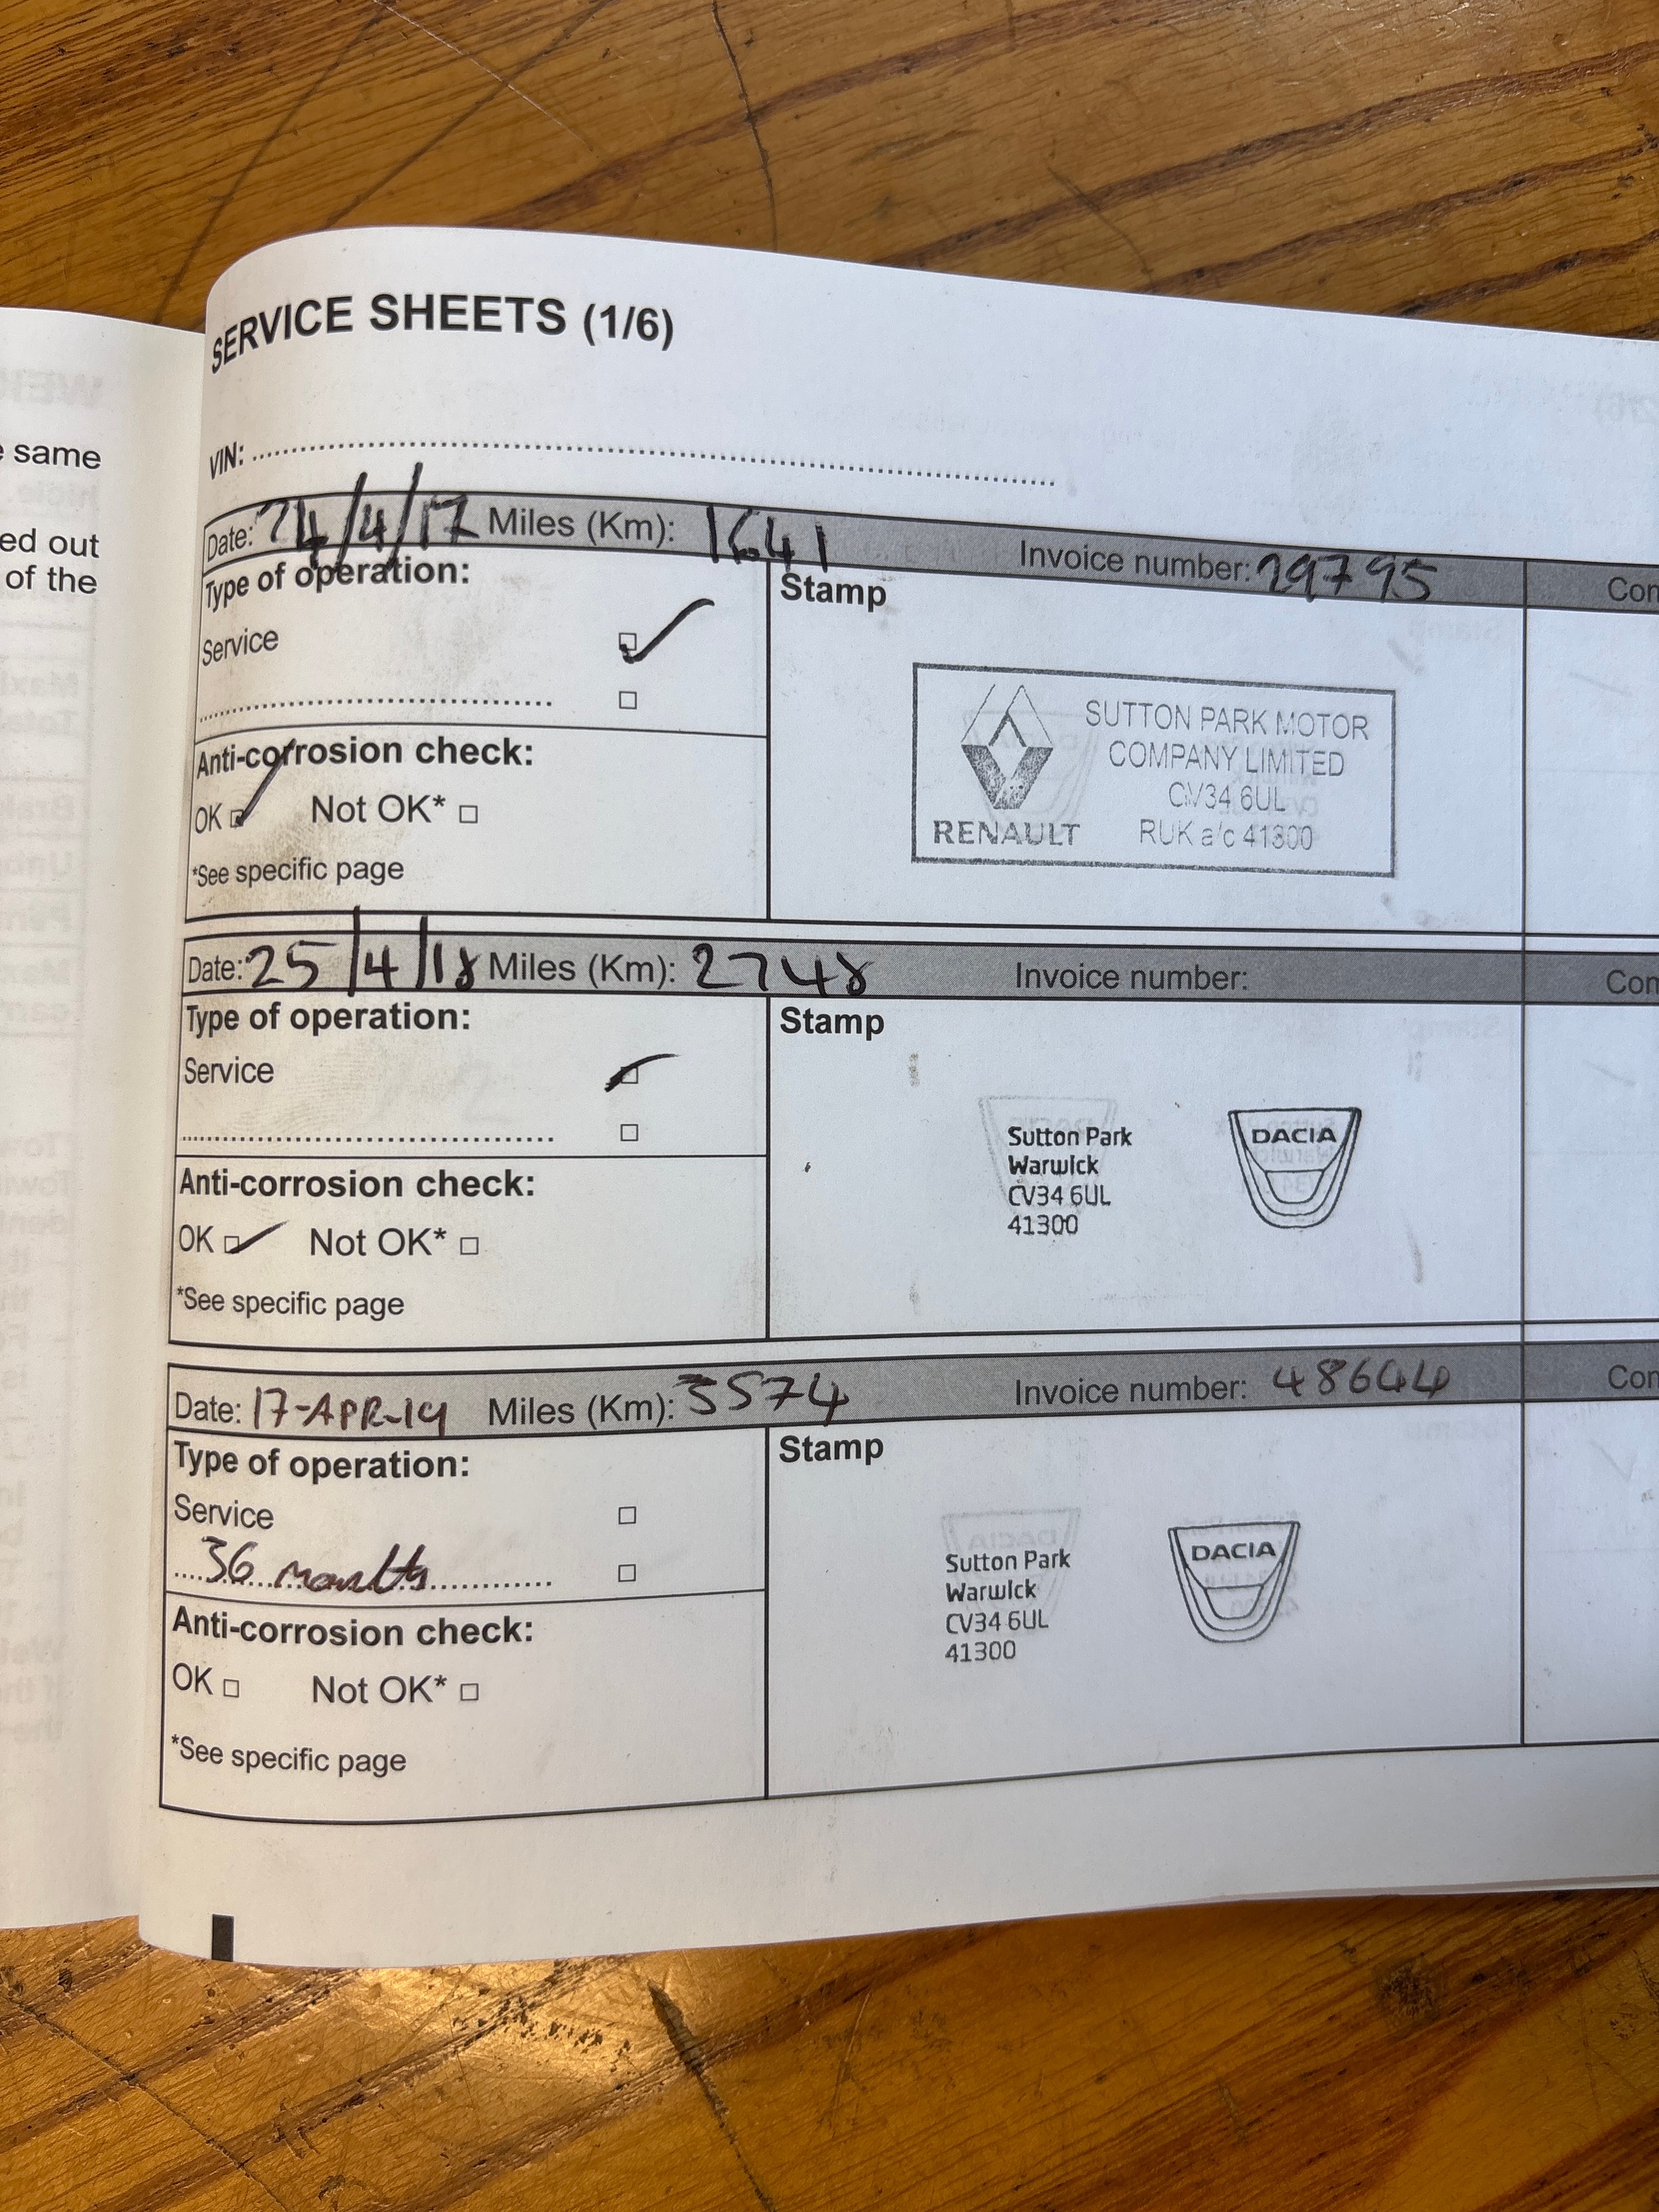 SERVICE SHEETS (1/6)
e same
ed out
of the
VIN:
Date: 24/4/17 Miles (Km): 1641 Invoice number: 29795 Con
Type of operation:
Stamp
Service
SUTTON PARK MOTOR
COMPANY LIMITED
CV34 6UL
RUK a/c 41300
RENAULT
Anti-corrosion check:
OK Not OK*
*See specific page
Date: 25/4/18 Miles (Km): 2748 Invoice number: Con
Type of operation:
Stamp
Service
Sutton Park
Warwick
CV34 6UL
41300
DACIA
Anti-corrosion check:
OK Not OK*
*See specific page
Date: 17-APR-19 Miles (Km): 3574 Invoice number: 48644 Con
Type of operation:
Stamp
Service
36 months
Sutton Park
Warwick
CV34 6UL
41300
DACIA
Anti-corrosion check:
OK Not OK*
*See specific page